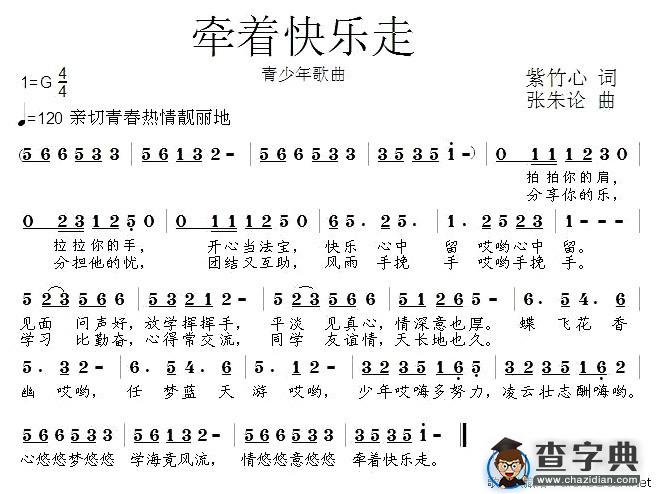 牵着快乐走
青少年歌曲
1=G 4/4
紫竹心 词
张朱论 曲
♩=120 亲切青春热情靓丽地
(5 6 6 5 3 3 | 5 6 1 3 2 - | 5 6 6 5 3 3 | 5 6 3 5 i -) | 0 1 1 1 2 3 0
拍拍你的肩，
分享你的乐，
0 2 3 1 2 5 0 | 0 1 1 1 2 5 0 | 6 5. 5. 6 | 5 2 2 5 2 3 | 1 - - -
拉拉你的手， 开心当法宝， 快乐 心中 留 哎哟心中 留。
分担他的忧， 团结又互助， 风雨 手挽 手 哎哟手挽 手。
5 2 3 5 6 6 | 5 3 3 2 1 2 | 5 2 3 5 3 5 | 5 6 1 6 5 - | 5. 5 4. 6
见面 问声好，放学挥挥手， 平淡 见真心，情深意也厚。 蝶 飞花 香
学习 比勤奋，心得常交流， 同学 友谊情，天长地也久。
5. 3 5 6 | 1. 1 4. 6 | 5. 3 5 6 | 5 5 3 5 1 6 6 | 5 5 3 5 1 6 6
幽 哎哟， 任 梦蓝 天 游 哎哟， 少年哎嗨多努力，凌云壮志酬嗨哟。
5 6 6 5 3 3 | 5 6 1 3 2 - | 5 6 6 5 3 3 | 5 6 3 5 i -
心悠悠梦悠悠 学海竞风流， 情悠悠意悠悠 牵着快乐走。
查字典
www.chazidian.com